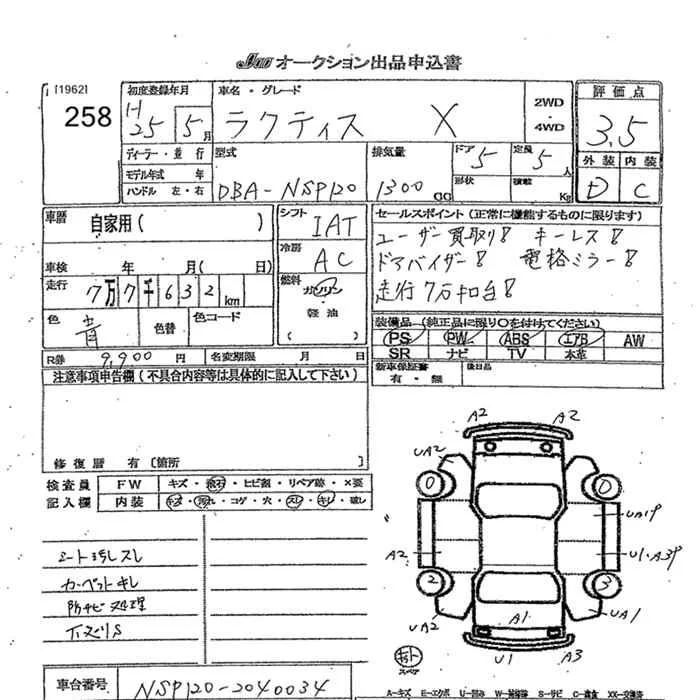 JU オークション出品申込書
[1962]
258
初度登録年月
H25 5月
車名・グレード
ラクティス X
2WD
・
4WD
評価点
3.5
ディーラー・並行
モデル年式 年
ハンドル 左・右
型式
DBA-NSP120
排気量
1300 CC
ドア 5
定員 5人
形状
積載 Kg
外装 内装
D C
車歴 自家用( )
車検 年 月( 日)
走行 7万7千632km
色 青 色替 色コード
シフト IAT
冷房 AC
燃料
ガソリン
・
軽油
( )
セールスポイント(正常に機能するものに限ります)
ユーザー買取り! キーレス!
ドアバイザー! 電格ミラー!
走行7万キロ台!
装備品(純正品に限り○を付けてください)
PS PW ABS エアB AW
SR ナビ TV 本革
新車保証書
有・無
後日品
R券 9,900円 名変期限 月 日
注意事項申告欄(不具合内容等は具体的に記入して下さい)
修復歴 有 〔箇所 〕
検査員
記入欄
FW キズ・飛石・ヒビ割・リペア跡・×要
内装 キズ・汚れ・コゲ・穴・スレ・キレ・破し
シート汚レスレ
カーペットキレ
防サビ処理
下ズリS
車台番号 NSP120-2040034
A2 A2
UA2
0 0
UA1P
A2 U1・A3P
2 3
UA2 A1 UA1
U1 A3
キット
スペア
A-キズ E-エクボ U-凹み W-補修跡 S-サビ C-腐食 XX-交換済